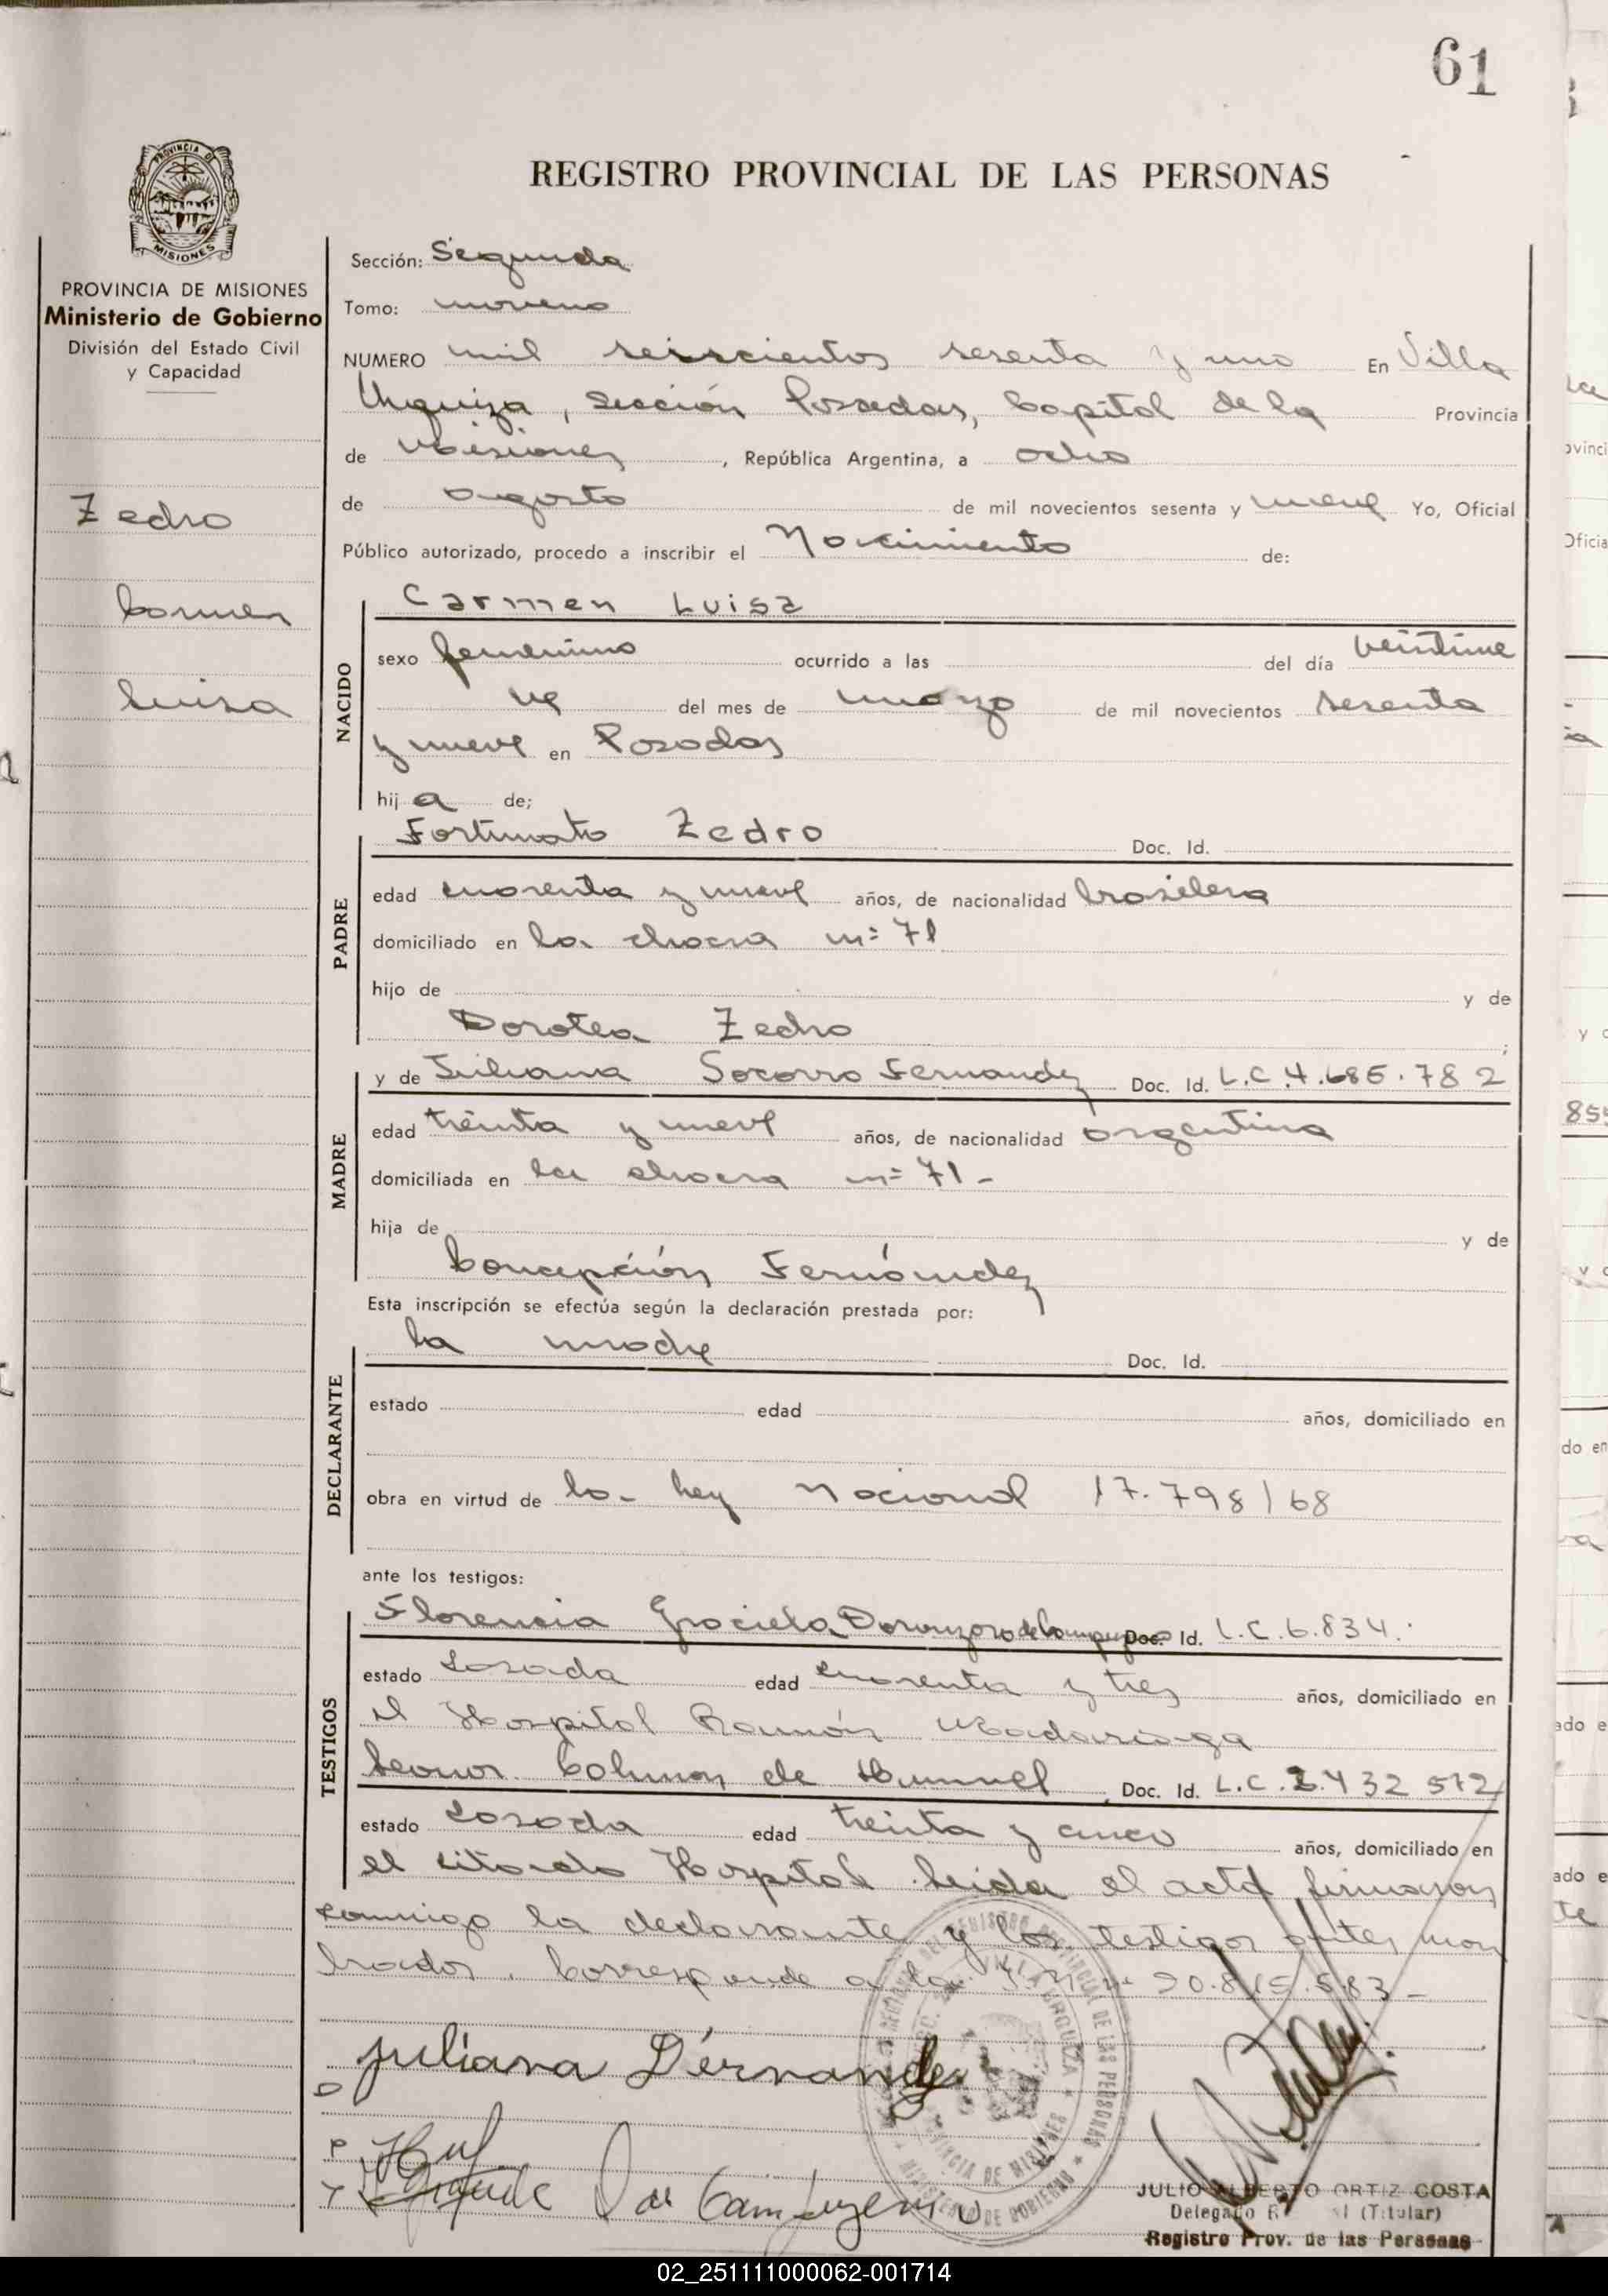 61
REGISTRO PROVINCIAL DE LAS PERSONAS
PROVINCIA DE
MISIONES
PROVINCIA DE MISIONES
Ministerio de Gobierno
División del Estado Civil
y Capacidad
Zedro
Carmen
Luisa
Sección: Segunda
Tomo: noveno
NUMERO mil seiscientos sesenta y uno En Villa
Urquiza, sección Posadas, Capital de la Provincia
de Misiones, República Argentina, a ocho
de agosto de mil novecientos sesenta y nueve Yo, Oficial
Público autorizado, procedo a inscribir el Nacimiento de:
NACIDO
Carmen Luisa
sexo femenino ocurrido a las del día veintinue
ve del mes de marzo de mil novecientos sesenta
y nueve en Posadas
hija de;
PADRE
Fortunato Zedro Doc. Id.
edad cuarenta y nueve años, de nacionalidad brasilera
domiciliado en la chacra nº 71
hijo de y de
Dorotea Zedro ;
MADRE
y de Juliana Socorro Fernandez Doc. Id. L.C. 4.685.782
edad treinta y nueve años, de nacionalidad argentina
domiciliada en la chacra nº 71 -
hija de y de
Concepción Fernández
Esta inscripción se efectúa según la declaración prestada por:
DECLARANTE
la madre Doc. Id.
estado edad años, domiciliado en
obra en virtud de la Ley Nacional 17.798/68
ante los testigos:
TESTIGOS
Florencia Graciela de Doc. Id. L.C. 6.834.
estado casada edad cuarenta y tres años, domiciliado en
el Hospital Ramón Madariaga
Leonor Colman de Hummel Doc. Id. L.C. 2.432 512
estado casada edad treinta y cinco años, domiciliado en
el citado Hospital. Leida el acta, firmaron
conmigo la declarante y los testigos antes nom
brados. Corresponde a la nº 20.815.583 -
Juliana Fernandez
de Campuzano
VILLA URQUIZA
PROVINCIA DE MISIONES
MINISTERIO DE GOBIERNO
JULIO ALBERTO ORTIZ COSTA
Delegado (Titular)
Registro Prov. de las Personas
02_251111000062-001714